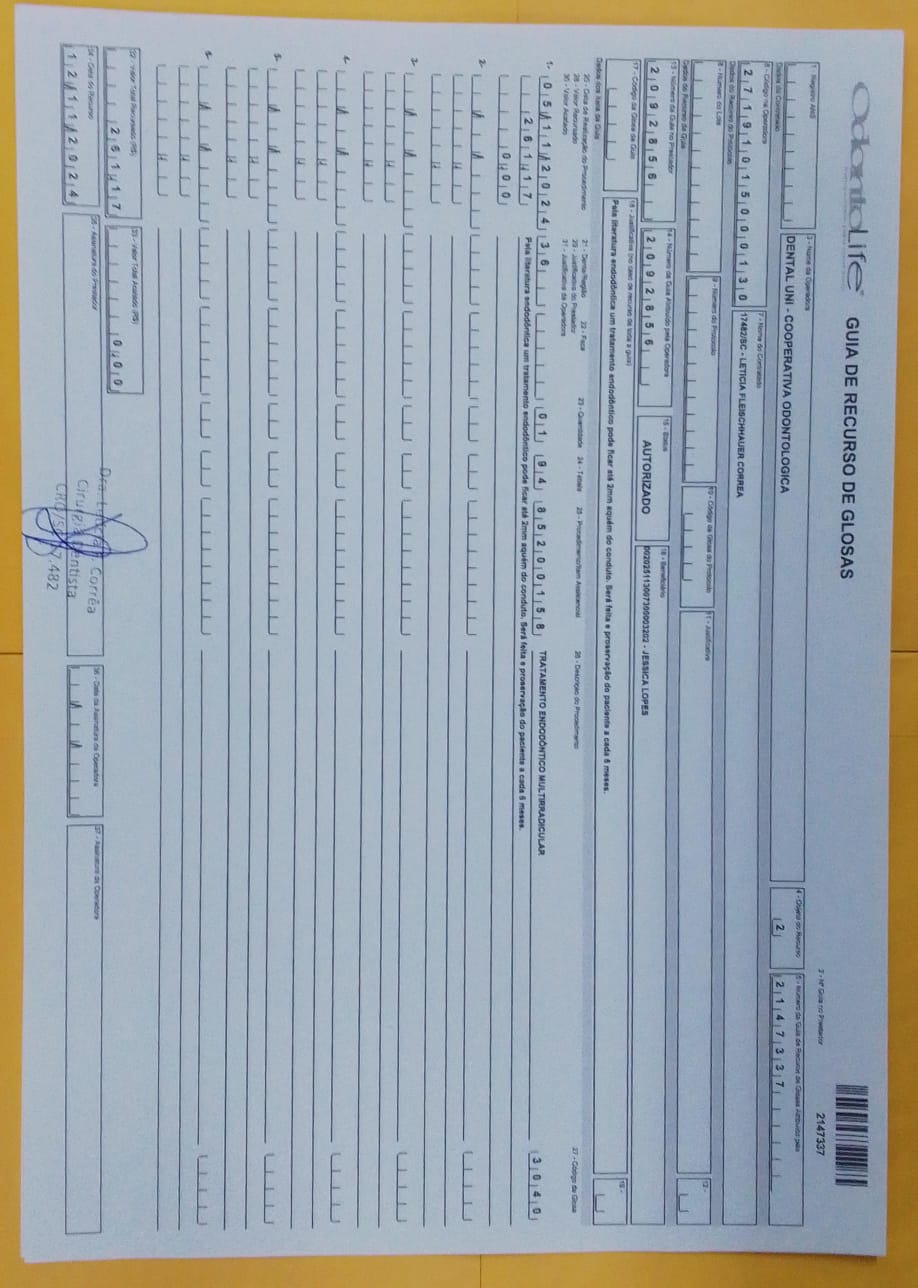 OdontoLife®
GUIA DE RECURSO DE GLOSAS
2 - Nº Guia no Prestador 2147337
1 - Registro ANS
3 - Nome da Operadora
DENTAL UNI - COOPERATIVA ODONTOLOGICA
4 - Objeto do Recurso
2
5 - Número da Guia de Recurso de Glosas Atribuído pela
2147337
Dados do Contratado
6 - Código na Operadora
27191015000130
7 - Nome do Contratado
17482/SC - LETICIA FLEISCHHAUER CORREA
Dados do Recurso do Protocolo
8 - Número do Lote
9 - Número do Protocolo
10 - Código da Glosa do Protocolo
11 - Justificativa
12 -
Dados do Recurso da Guia
13 - Número da Guia no Prestador
2092856
14 - Número da Guia Atribuído pela Operadora
2092856
15 - Status
AUTORIZADO
16 - Beneficiário
00202511300730003202 - JESSICA LOPES
17 - Código da Glosa da Guia
18 - Justificativa (no caso de recurso de toda a guia)
Pela literatura endodôntica um tratamento endodôntico pode ficar até 2mm aquém do conduto. Será feita e proservação do paciente a cada 6 meses.
19 -
Dados dos Itens da Guia
20 - Data de Realização do Procedimento 21 - Dente/Região 22 - Face 23 - Quantidade 24 - Tabela 25 - Procedimento/Item Assistencial 26 - Descrição do Procedimento 27 - Código da Glosa
28 - Valor Recursado 29 - Justificativa do Prestador
30 - Valor Acatado 31 - Justificativa da Operadora
1- 05/11/2024 36 01 94 85200158 TRATAMENTO ENDODÔNTICO MULTIRRADICULAR 3040
261,17 Pela literatura endodôntica um tratamento endodôntico pode ficar até 2mm aquém do conduto. Será feita e proservação do paciente a cada 6 meses.
0,00
2-
3-
4-
5-
6-
32 - Valor Total Recursado (R$)
261,17
33 - Valor Total Acatado (R$)
0,00
34 - Data do Recurso
12/11/2024
35 - Assinatura do Prestador
Dra. Corrêa
Cirurgiã Dentista
CRO/SC 17.482
36 - Data da Assinatura da Operadora
37 - Assinatura da Operadora